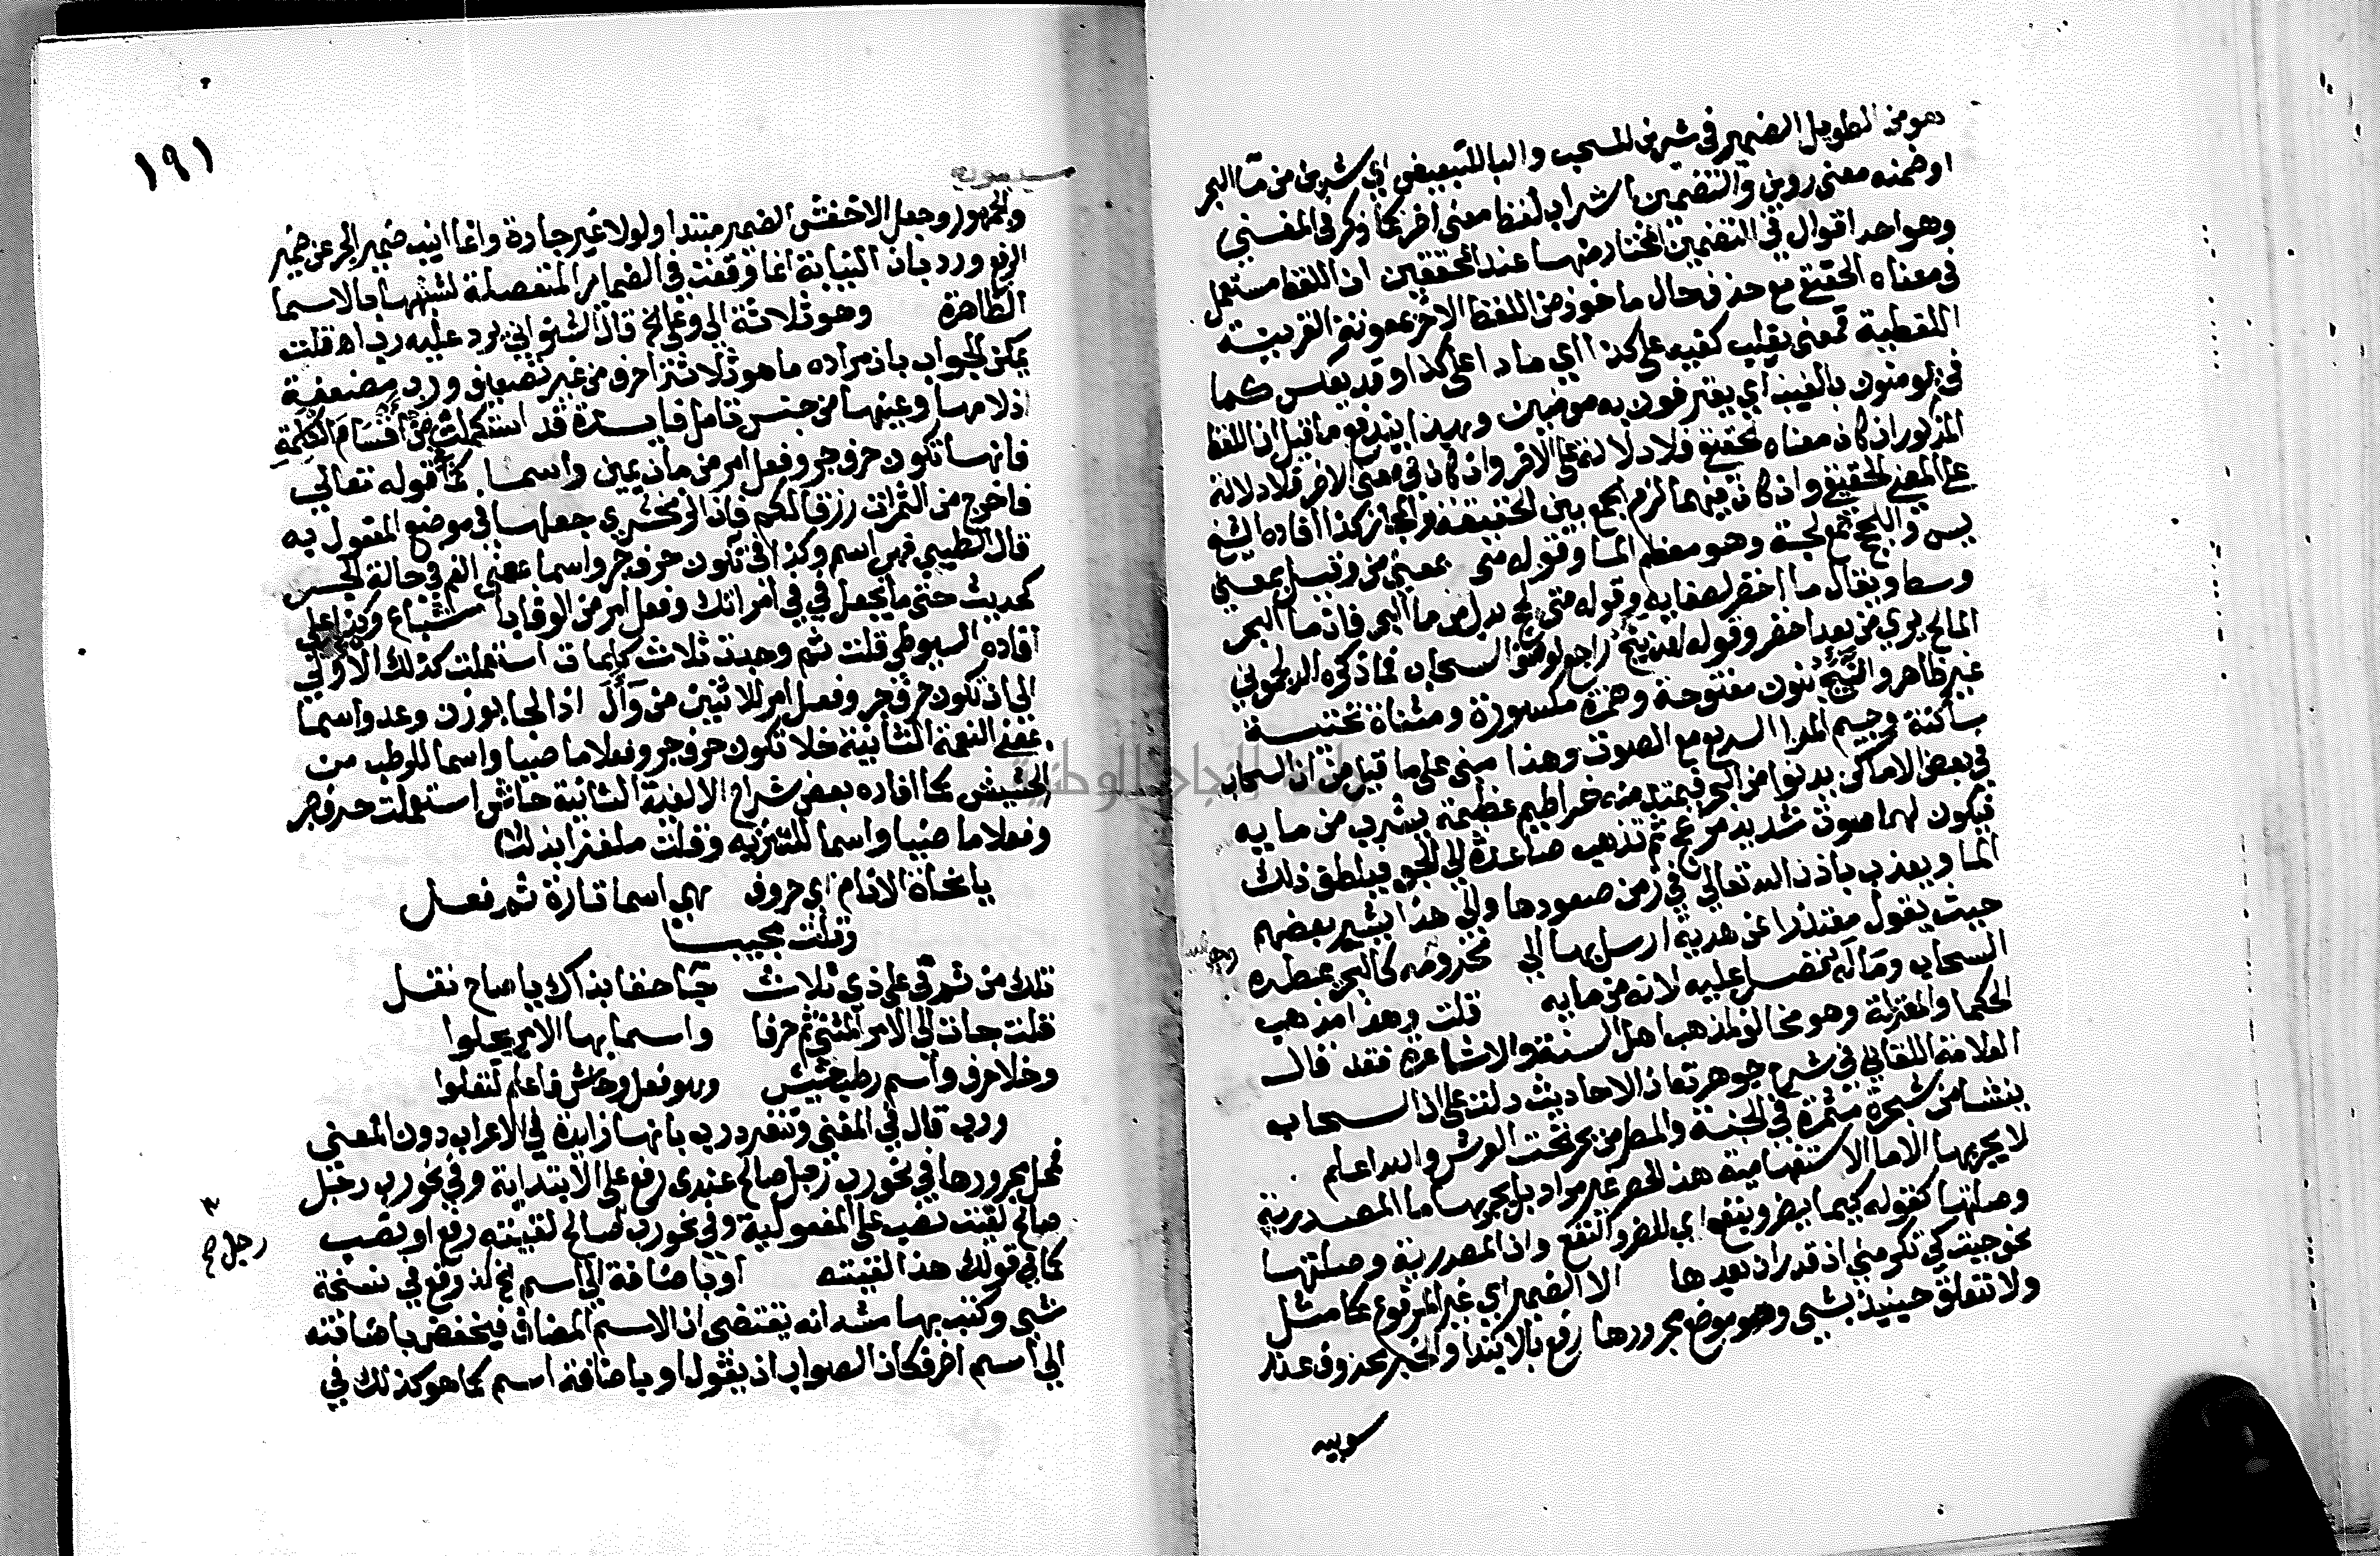 وهو من الطويل الضمير في شربن للسحب والبا للتبعيض اي شربن من ماء البحر
او ضمنه معنى روين والتضمين اشراب لفظ معنى اخر كما ذكر في المغني
وهو احد اقوال في التضمين المختار منها عند المحققين ان اللفظ مستعمل
في معناه الحقيقي مع حذف حال ماخوذ من اللفظ الاخر بمعونة القرينة
اللفظية فمعنى يقلب كفيه على كذا اي ناد ما على كذا وقد يعكس كما
في يومنون بالغيب اي يعترفون به مومنين وبهذا يندفع ما قيل ان اللفظ
المذكور ان كان معناه الحقيقي فلا دلالة على الاخر وان كان في معنى الاخر فلا دلالة
على المعنى الحقيقي وان كان فيهما لزم الجمع بين الحقيقة والمجاز كذا افاده الشيخ
يس واللجج جمع لجة وهو معظم الما وقوله متى بمعنى من وقيل بمعنى
وسط ويقال ما اخضر لصفايه وقوله متى لجج بدل من ما البحر فان ما البحر
المالح يرى من بعد اخضر وقوله لهن نئيج راجع لوصف السحاب فما ذكره الدلجوني
غير ظاهر والنئيج بنون مفتوحة وهمزة مكسورة ومثناة تحتية
ساكنة وجيم المر السريع مع الصوت وهذا مبني على ما قيل من ان السحاب
في بعض الاماكن يدنوا من البحر فيمتد منه خراطيم عظيمة يشرب من مايه
فيكون لها صوت شديد مزعج ثم تذهب صاعدة الى الجو فيلطف ذلك
الما ويعذب باذن الله تعالى في زمن صعودها والى هذا يشير بعضهم
حيث يقول معتذرا عن هدية ارسل بها الى مخدومه كالبحر يمطره
السحاب وما له فضل عليه لانه من مايه قلت وهذا مذهب
الحكما والمعتزلة وهو مخالف لمذهب اهل السنة والاشاعرة فقد قال
العلامة اللقاني في شرح جوهرته ان الاحاديث دلت على ان السحاب
ينشا من شجرة مثمرة في الجنة والمطر من بحر تحت العرش والله اعلم
لا يجر بها الا ما الاستفهامية هذا الحصر غير مراد بل يجر بها ما المصدرية
وصلتها كقوله كيما يضر وينفع اي للضر والنفع وان المصدرية وصلتها
نحو جيت كي تكرمني اذ قدر ان بعدها الا الضمير اي غير المرفوع كما مثل
ولا تتعلق حينيذ بشي وهو موضع مجرورها رفع بالابتدا والخبر محذوف عند
سيبويه
١٩١
سيبويه
والجمهور وجعل الاخفش الضمير مبتدا ولولا غير جارة وانما انيب ضمير الجر عن ضمير
الرفع ورد بان النيابة انما وقعت في الضماير المنفصلة لشبهها بالاسما
الظاهرة وهو ثلاثة الى وعلى الخ قال الشنواني يرد عليه رب اه قلت
يمكن الجواب بان مراده ما هو ثلاثة احرف من غير تضعيف ورب مضعفة
اذ لامها وعينها من جنس تامل فايدة قد استكملت من اقسام الكلمة
فانها تكون حرف جر وفعل امر من مان يمين واسما كما قوله تعالى
فاخرج من الثمرات رزقا لكم فان الزمخشري جعلها في موضع المفعول به
قال الطيبي فهي اسم وكذا في تكون حرف جر واسما بمعنى الفم في حالة الجر
كحديث حتى ما تجعل في في امراتك وفعل امر من الوقا باشباع وكذا على
افاده السيوطي قلت ثم وجدت ثلاث كلمات استعملت كذلك الاولى
الى اذ تكون حرف جر وفعل امر للاثنين من وأل اذا لجا بوزن وعد واسما
بمعنى النعمة الثانية خلا تكون حرف جر وفعلا ماضيا واسما للرطب من
الحشيش كما افاده بعض شراح الالفية الثانية حاشى استعملت حرف جر
وفعلا ماضيا واسما للتنزيه وقلت ملغزا بذلك
يا نحاة الانام اي حروف نهي اسما تارة ثم فعل
وقلت مجيبا
تلك من ثم في على ذي ثلاث حقا بذاك يا صاح نقل
قلت جات الى الامر المثنى ثم حرفا واسما بها الامر
وخلا حرف واسم رطب حشيش وهو فعل وحاشى فاعلم
ورب قال في المغني وتنفرد رب بانها زايدة في الاعراب دون المعنى
فمحل مجرورها في نحو رب رجل صالح عندي رفع على الابتداية وفي نحو رب رجل
صالح لقيت نصب على المفعولية وفي نحو رب صالح لقيته رفع او نصب
رجل صح
كما في قولك هذا لقيته او باضافة الى اسم الخ وقع في نسخة
شي وكتب بها مشد انه يقتضي ان الاسم المضاف فيخفض باضافته
الى اسم اخر فكان الصواب ان يقول او باضافة اسم كما هو كذلك في